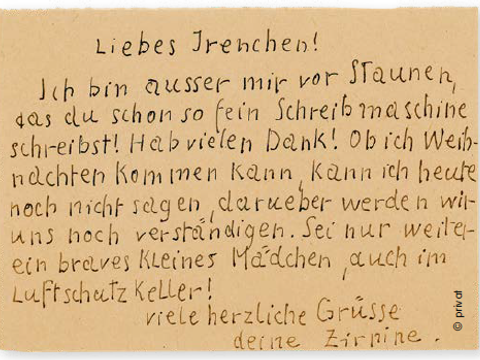 Liebes Irenchen!
Ich bin ausser mir vor Staunen,
das du schon so fein Schreibmaschine
schreibst! Hab vielen Dank! Ob ich Weih-
nachten kommen kann, kann ich heute
noch nicht sagen, darueber werden wir
uns noch verständigen. Sei nur weiter-
ein braves kleines Mädchen, auch im
Luftschutzkeller!
viele herzliche Grüsse
deine Zirnine.
© privat